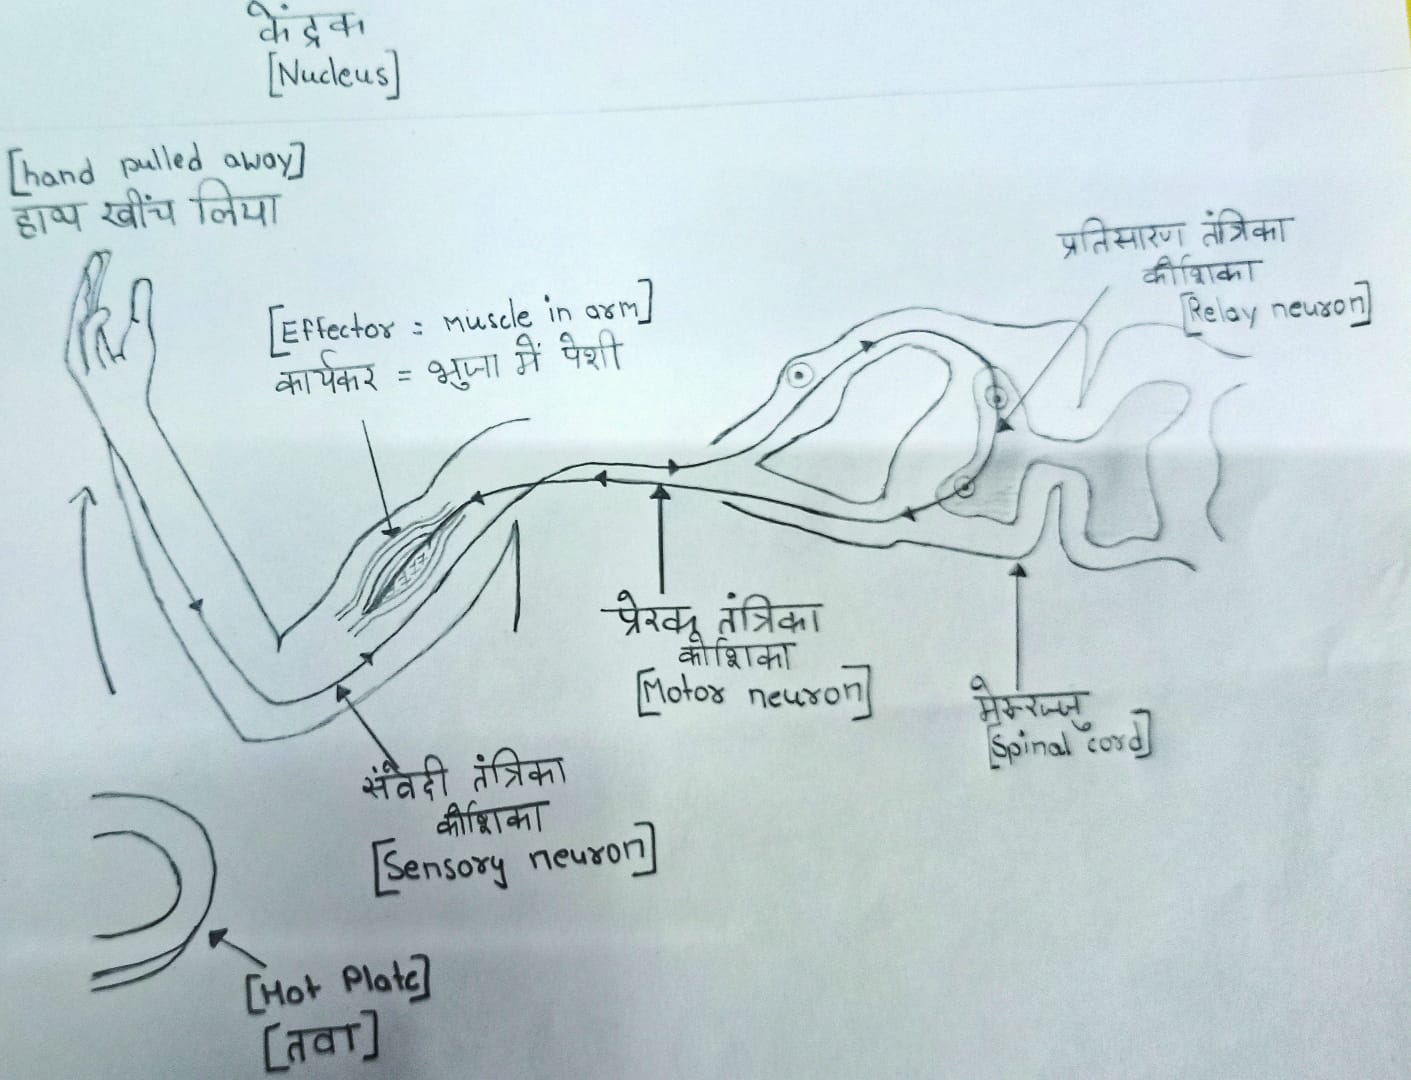 केंद्रक
[Nucleus]
[hand pulled away]
हाथ खींच लिया
[Effector = muscle in arm]
कार्यकर = भुजा में पेशी
प्रतिसारण तंत्रिका
कोशिका
[Relay neuron]
प्रेरक तंत्रिका
कोशिका
[Motor neuron]
मेरूरज्जु
[Spinal cord]
संवेदी तंत्रिका
कोशिका
[Sensory neuron]
[Hot Plate]
[तवा]